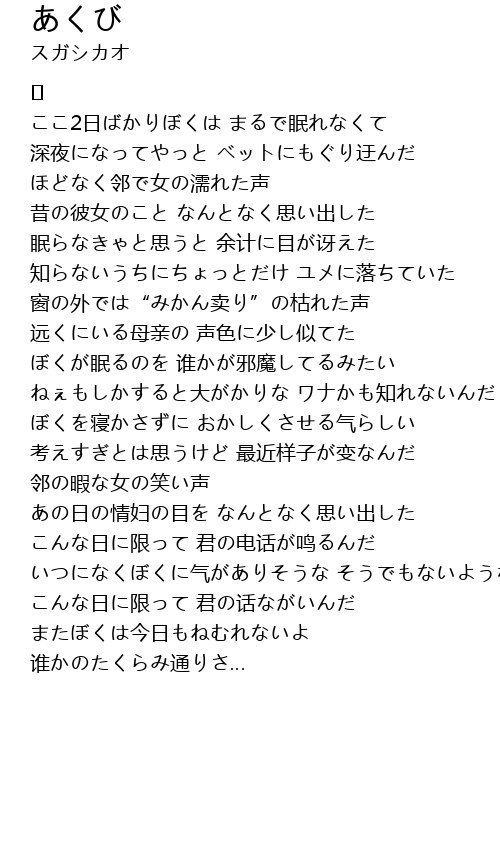 あくび
スガシカオ
ここ2日ばかりぼくは まるで眠れなくて
深夜になってやっと ベットにもぐり迂んだ
ほどなく邻で女の濡れた声
昔の彼女のこと なんとなく思い出した
眠らなきゃと思うと 余计に目が讶えた
知らないうちにちょっとだけ ユメに落ちていた
窗の外では“みかん卖り”の枯れた声
远くにいる母亲の 声色に少し似てた
ぼくが眠るのを 谁かが邪魔してるみたい
ねぇもしかすると大がかりな ワナかも知れないんだ
ぼくを寝かさずに おかしくさせる气らしい
考えすぎとは思うけど 最近样子が变なんだ
邻の暇な女の笑い声
あの日の情妇の目を なんとなく思い出した
こんな日に限って 君の电话が鸣るんだ
いつになくぼくに气がありそうな そうでもないよう
こんな日に限って 君の话ながいんだ
またぼくは今日もねむれないよ
谁かのたくらみ通りさ...